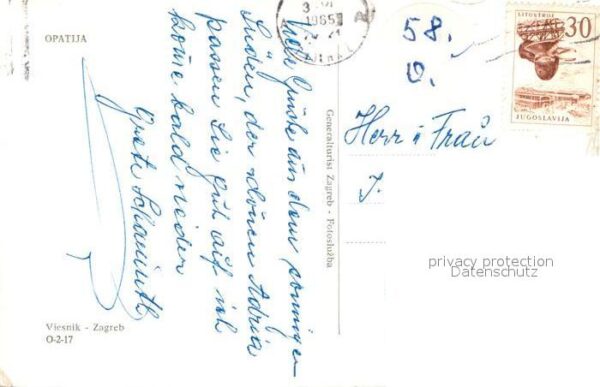 OPATIJA
Viele Grüße aus dem sonnigen
Süden, der schönen Adria
passen Sie gut auf ich
komme bald wieder
Grete
Vjesnik - Zagreb
O-2-17
Generalturist Zagreb - Fotoslužba
3
1965
21
58.
Herr i Frau
LITOSTROJ
30
JUGOSLAVIJA
privacy protection
Datenschutz